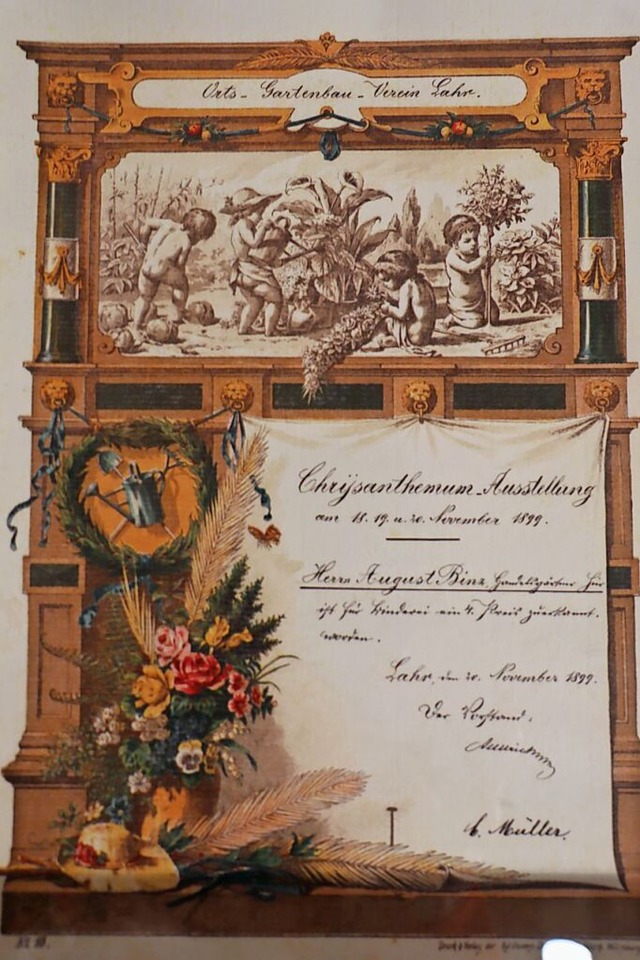 Orts-Gartenbau-Verein Lahr.
Chrysanthemum-Ausstellung
am 18. 19. u. 20. November 1899.
Herrn August Binz, Handelsgärtner hier
ist für Binderei ein 4. Preis zuerkannt
worden.
Lahr, den 20. November 1899.
Der Vorstand:
C. Müller.
Druck & Verlag der